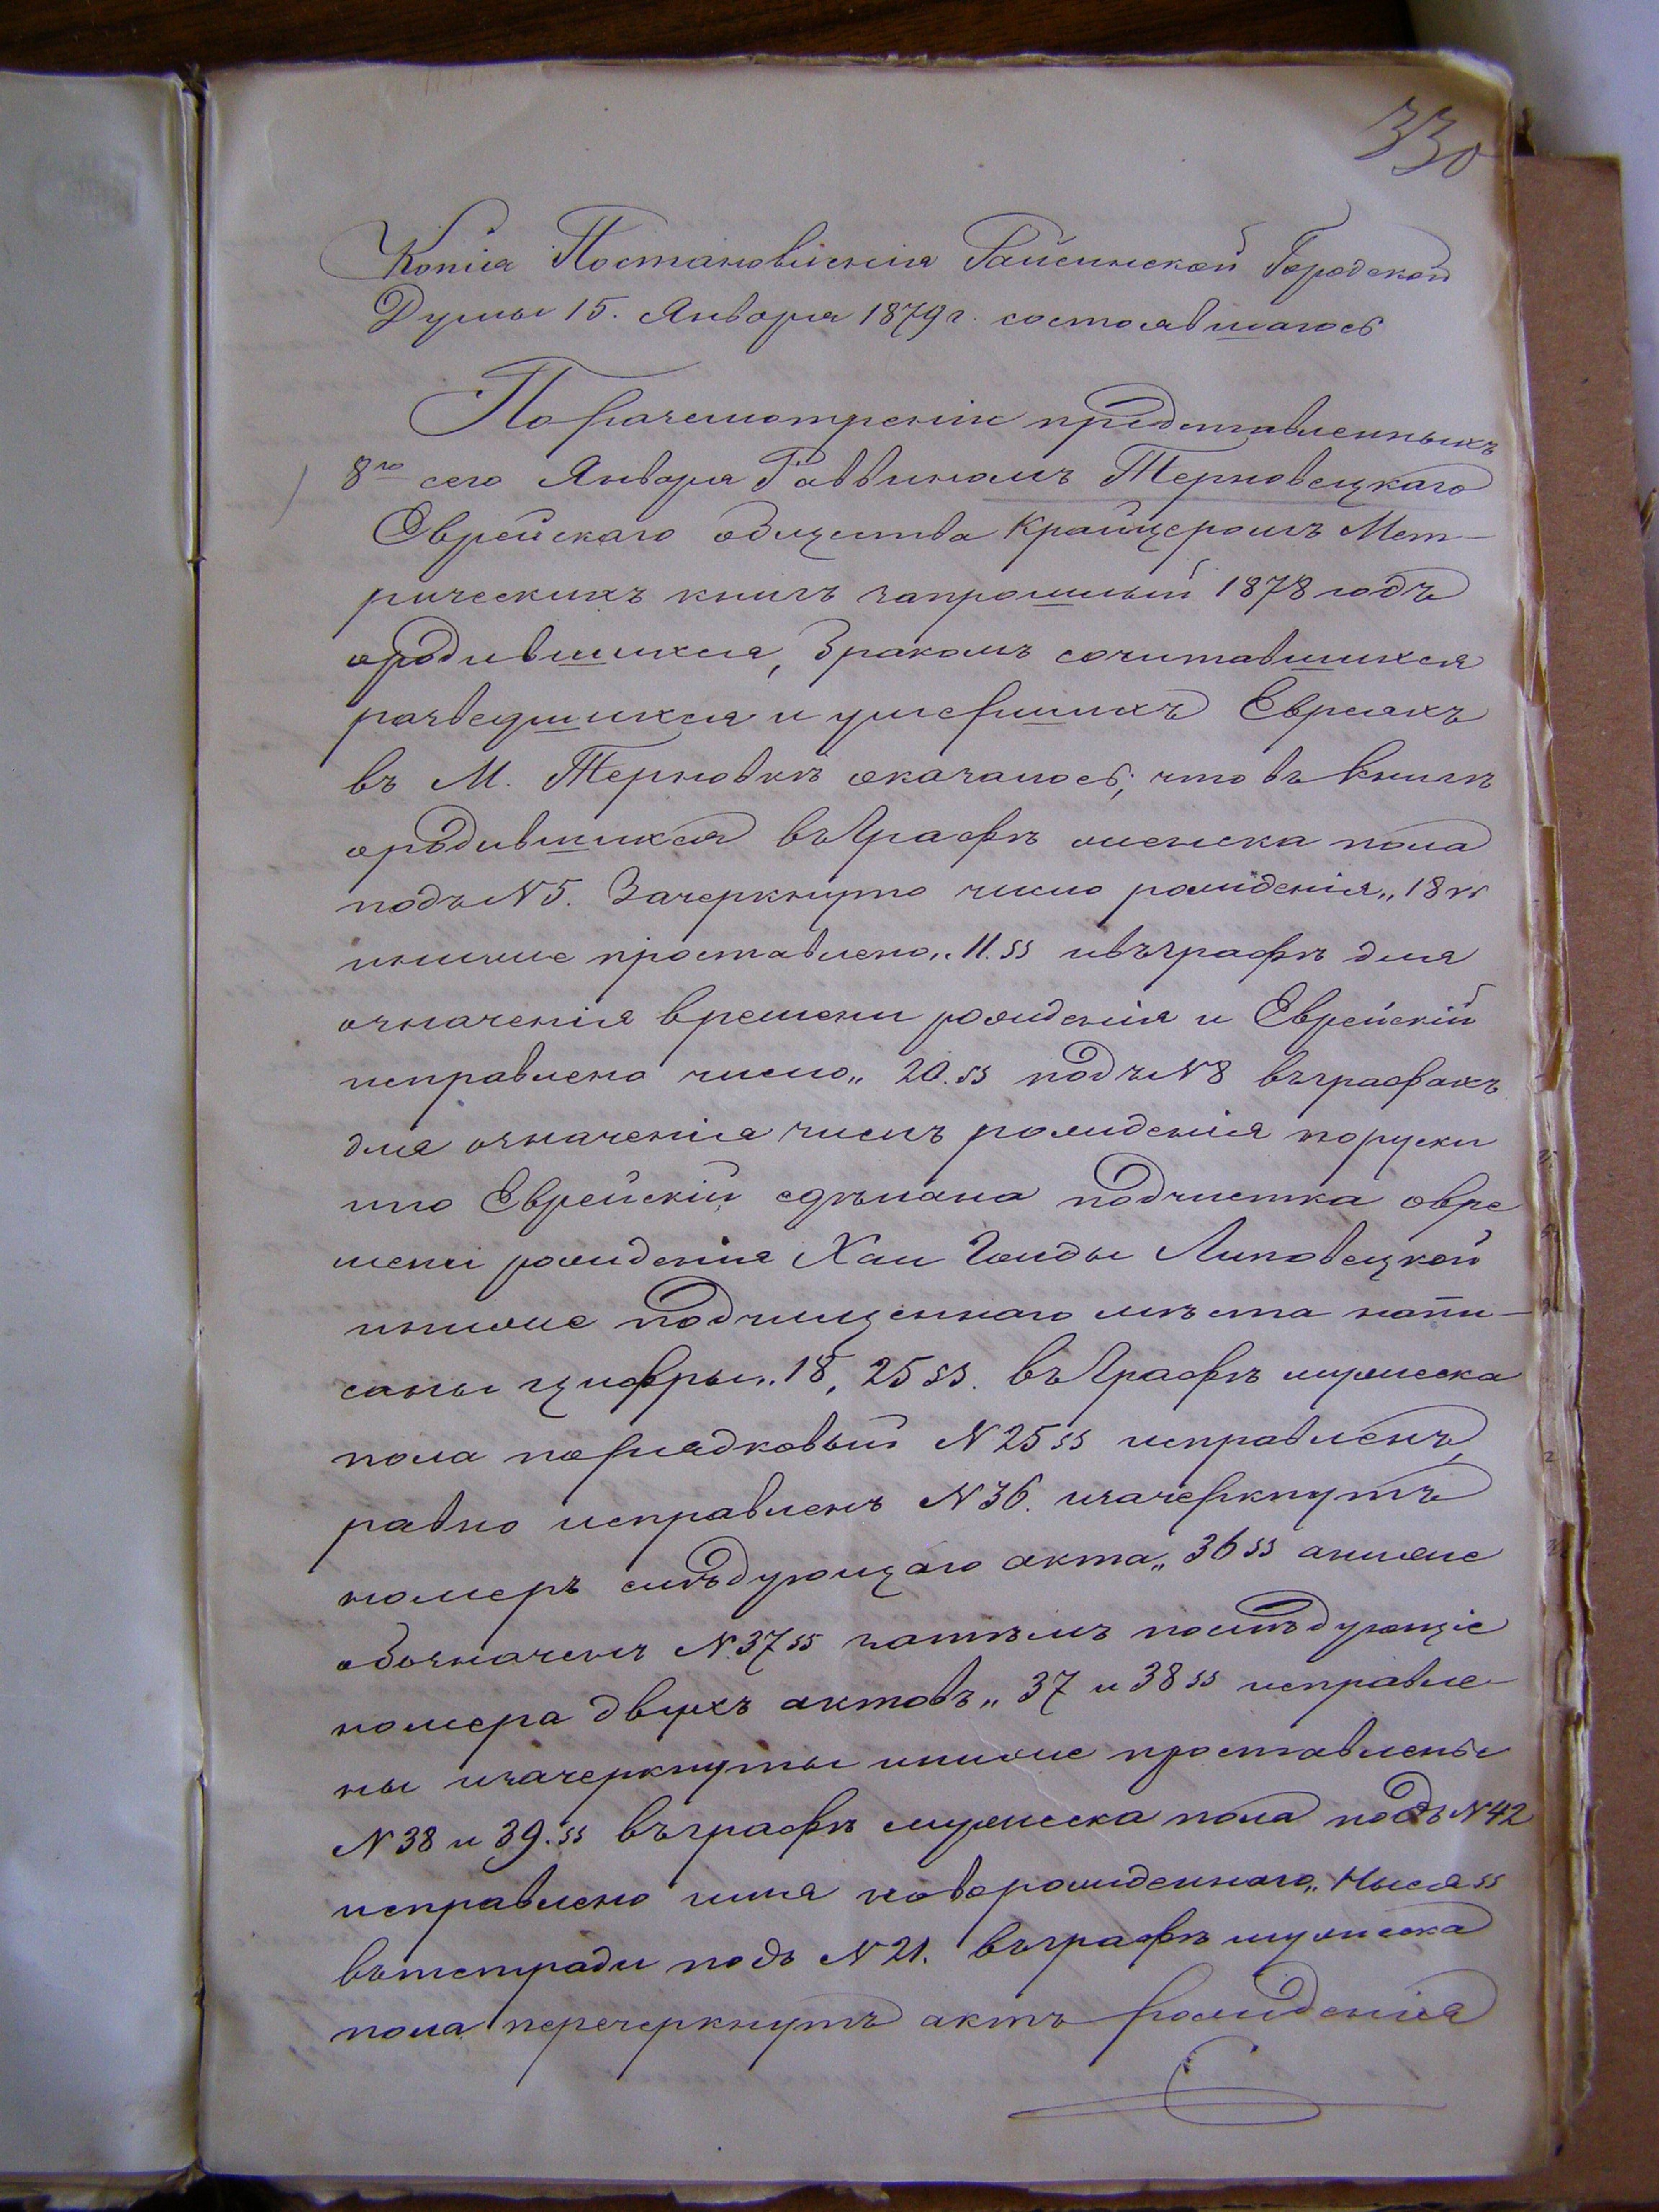 330
Копія Постановленія Гайсинской Городской
Думы 15. Января 1879 г. состоявшагося
По разсмотреніи представленныхъ
8го сего Января Раввиномъ Терновецкаго
Еврейскаго общества Крайцеромъ Мет-
рическихъ книгъ запрошлый 1878 годъ
ородившихся, Бракомъ сочитавшихся
разведшихся и умершихъ Евреяхъ
въ М. Терновкѣ оказалось, что въ Книгѣ
ородившихся въ Графѣ женска пола
подъ N 5. Зачеркнуто число рожденія „18"
иниже проставлено „11." ивъ графѣ для
означенія времени рожденія и Еврейскій
исправлено число „20." подъ N 8 въ графахъ
для означенія числъ рожденія поруски
ипо Еврейскій сдѣлана подчистка овре
мени рожденія Хаи Гольды Липовецкой
иниже подчищеннаго мѣста напи-
саны цифры „18, 25". въ Графѣ мужеска
пола порядковый N 25" исправленъ,
равно исправленъ N 36. изачеркнутъ
номеръ слѣдующаго акта „36" аниже
обозначенъ N 37" затѣмъ послѣдующіе
номера двухъ актовъ „37 и 38" исправле-
ны изачеркнуты иниже проставлены
N 38 и 39." въ графѣ мужеска пола подъ N 42
исправлено имя новорожденнаго „Нысея"
въ тетради подъ N 21. въ графѣ мужеска
пола перечеркнутъ актъ рожденія